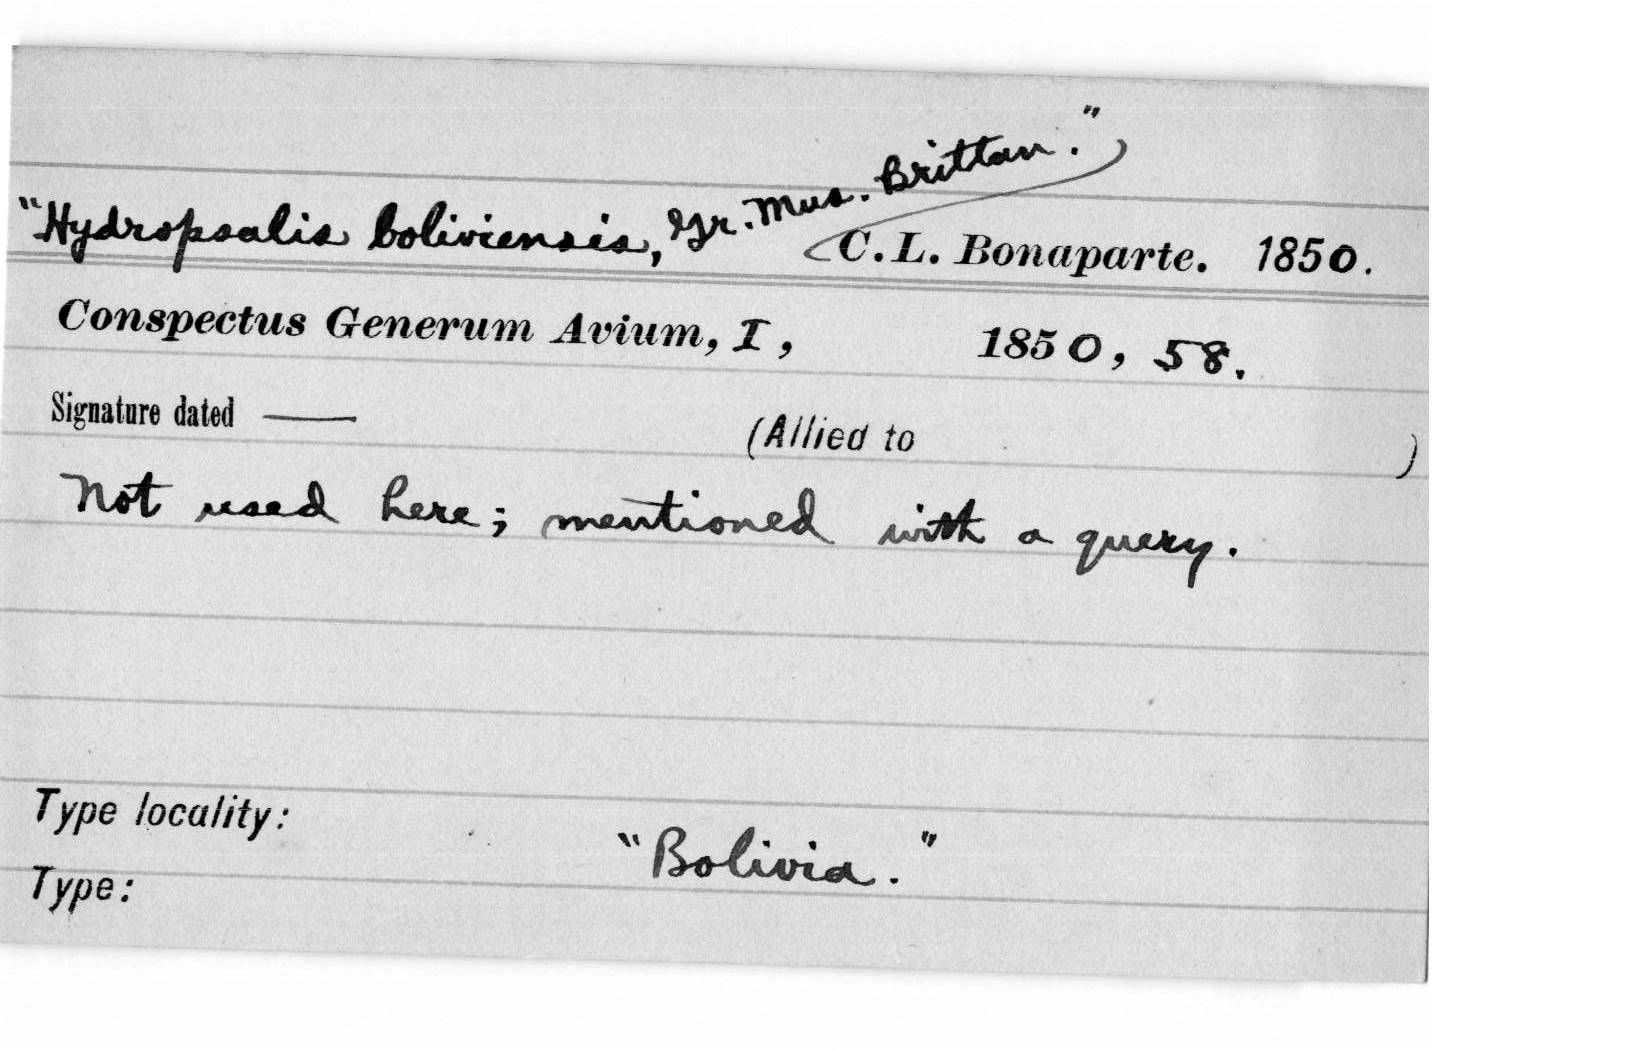 "Hydropsalis boliviensis, Gr. Mus. Brittan." C. L. Bonaparte. 1850.
Conspectus Generum Avium, I, 1850, 58.
Signature dated —— (Allied to )
Not used here; mentioned with a query.
Type locality:
"Bolivia."
Type: